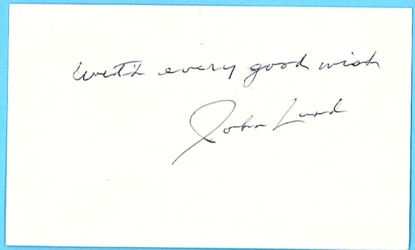 with every good wish
John Lund